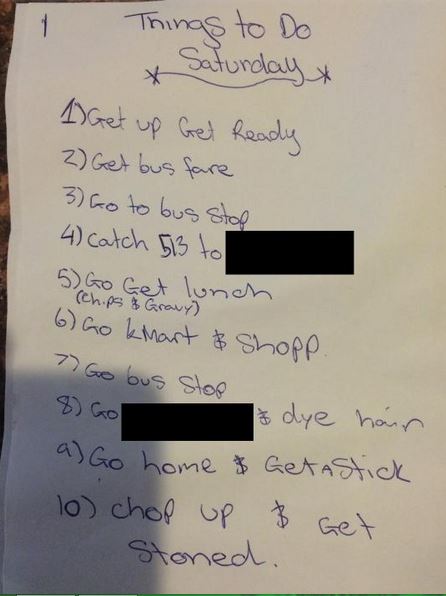 1
Things to Do
Saturday
1) Get up Get Ready
2) Get bus fare
3) Go to bus stop
4) Catch 513 to
5) Go Get lunch
(Chips & Gravy)
6) Go KMart & Shopp.
7) Go bus stop
8) Go & dye hair
9) Go home & Get A Stick
10) Chop up & Get
Stoned.